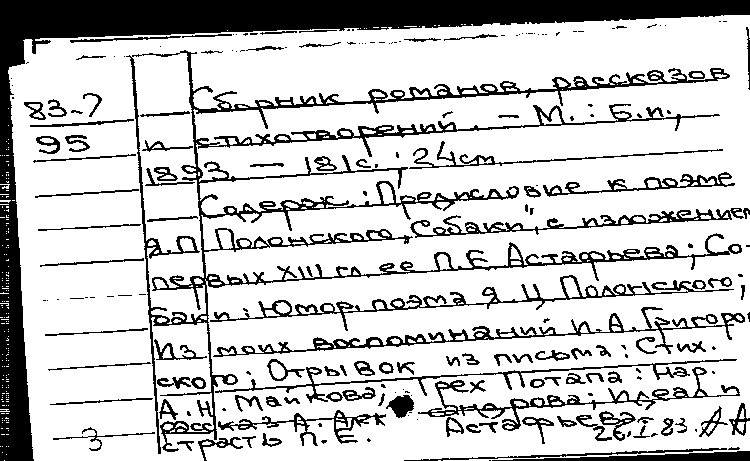 83-7 Сборник романов, рассказов
95 и стихотворений. – М. : Б.и.,
1893. – 181с. ; 24см.
Содерж.: Предисловие к поэме
Я.П. Полонского „Собаки“, с изложением
первых XIII гл. ее П.Е Астафьева; Со-
баки: Юмор. поэма Я. П Полонского;
Из моих воспоминаний И.А. Григоров
ского; Отрывок из письма: Стих.
А.Н. Майкова; Грех Потапа: Нар.
рассказ А. Александрова; Идеал и
3 страсть П.Е. Астафьева.
26.I.83.